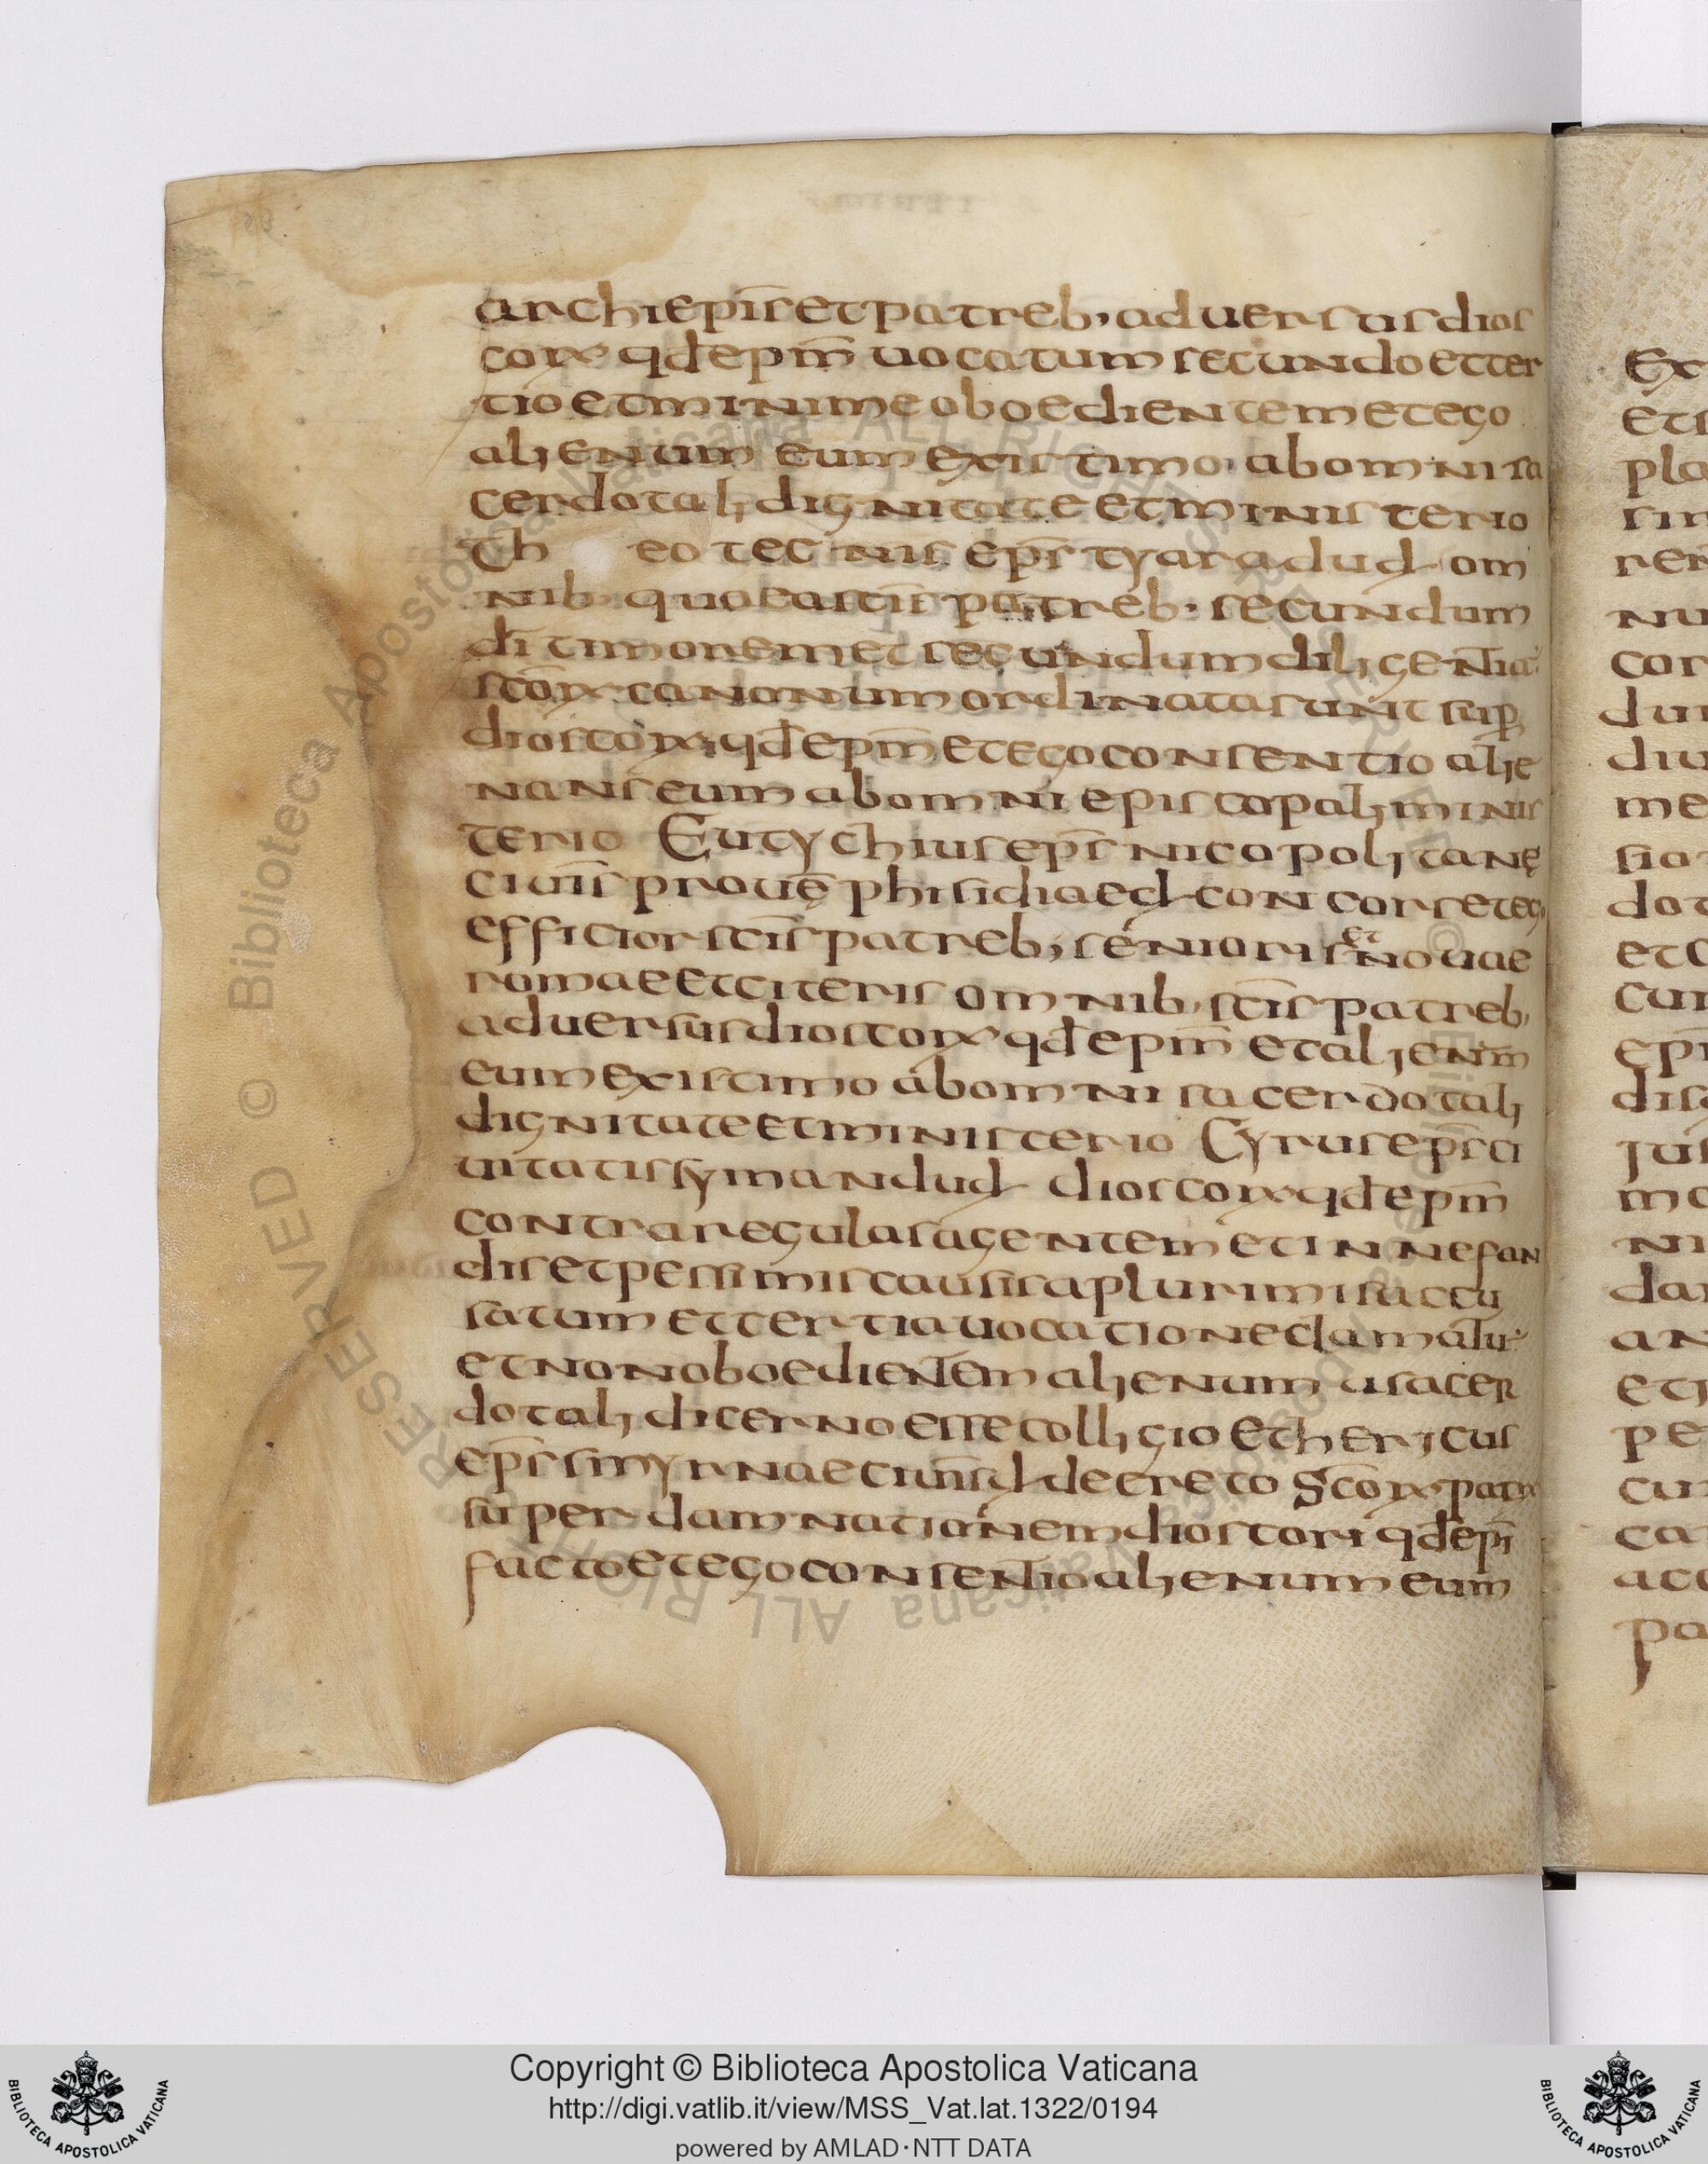 archiepīs et patreb; aduersus dios
corꝝ qđ epm̄ uocatum secundo et ter
tio et minime oboedientem et ego
alienum eum existimo ab omni sa
cerdotali dignitate et ministerio
Th eotecnus epīs tyara dud om
nib· quae a scīs patreb· secundum
dī timorem et secundum diligentiā
scōꝝ canonum ordinata sunt sup̄
dioscorꝝ qđ epm̄ et ego consentio alie
nans eum ab omni episcopali minis
terio Eutychius epīs nicopolitanę
ciuīs prouē phisidiae đ concors et ego
efficior scīs patreb; senioris et nouae
romae et citeris omnib; scīs patreb;
aduersus dioscorꝝ qđ epm̄ et alienm
eum existimo ab omni sacerdotali
dignitate et ministerio Cyrus epīs ci
uitatis symandud dioscorꝝ qđ epm̄
contra regulas agentem et in nefan
dis et pessimis causis a plurimis accu
satum et tertia uocatione clamatū
et non oboedientem alienum a sacer
dotali dicerno esse colligio Ethericus
epīs smyrnae ciuīs đ decreto Scōꝝ patꝝ
super damnationem dioscori qđ epī
facto et ego consentio alienum eum
Ex
et
pla
sin
ren
nu
cor
du
diu
me
sio
do
et
cu
ep
dis
jus
mo
ni
da
an
et
pe
cu
ca
acc
pa
Copyright © Biblioteca Apostolica Vaticana
http://digi.vatlib.it/view/MSS_Vat.lat.1322/0194
powered by AMLAD·NTT DATA
BIBLIOTECA APOSTOLICA VATICANA
BIBLIOTECA APOSTOLICA VATICANA
© Biblioteca Apostolica Vaticana ALL RIGHTS RESERVED
© Biblioteca Apostolica Vaticana ALL RIGHTS RESERVED